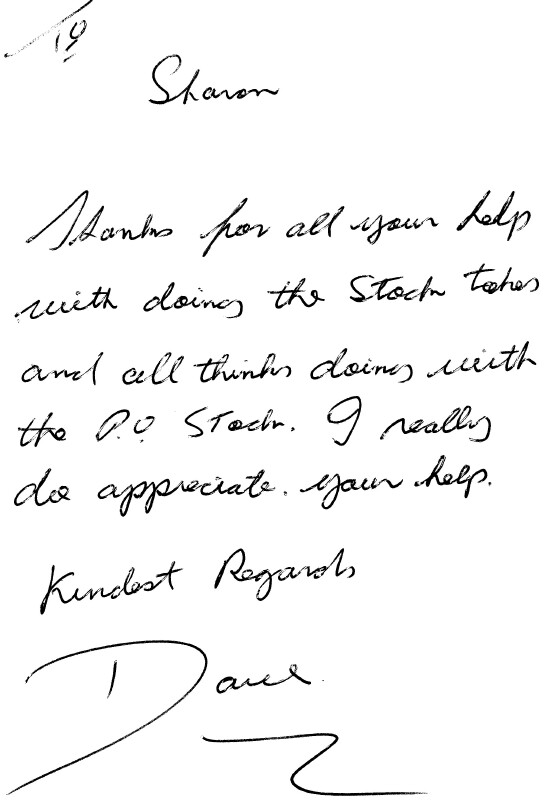 To
Sharon
Thanks for all your help
with doing the Stock takes
and all thinks doing with
the P.O Stock. I really
do appreciate. your help.
Kindest Regards
Dave